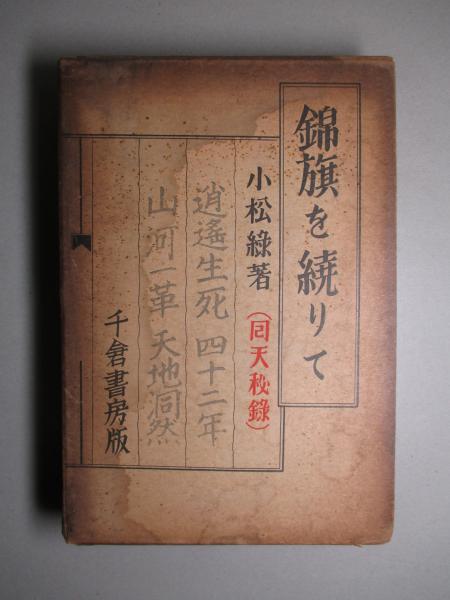 錦旗を繞りて
小松綠著
(囘天秘錄)
逍遙生死四十二年
山河一革天地洞然
千倉書房版